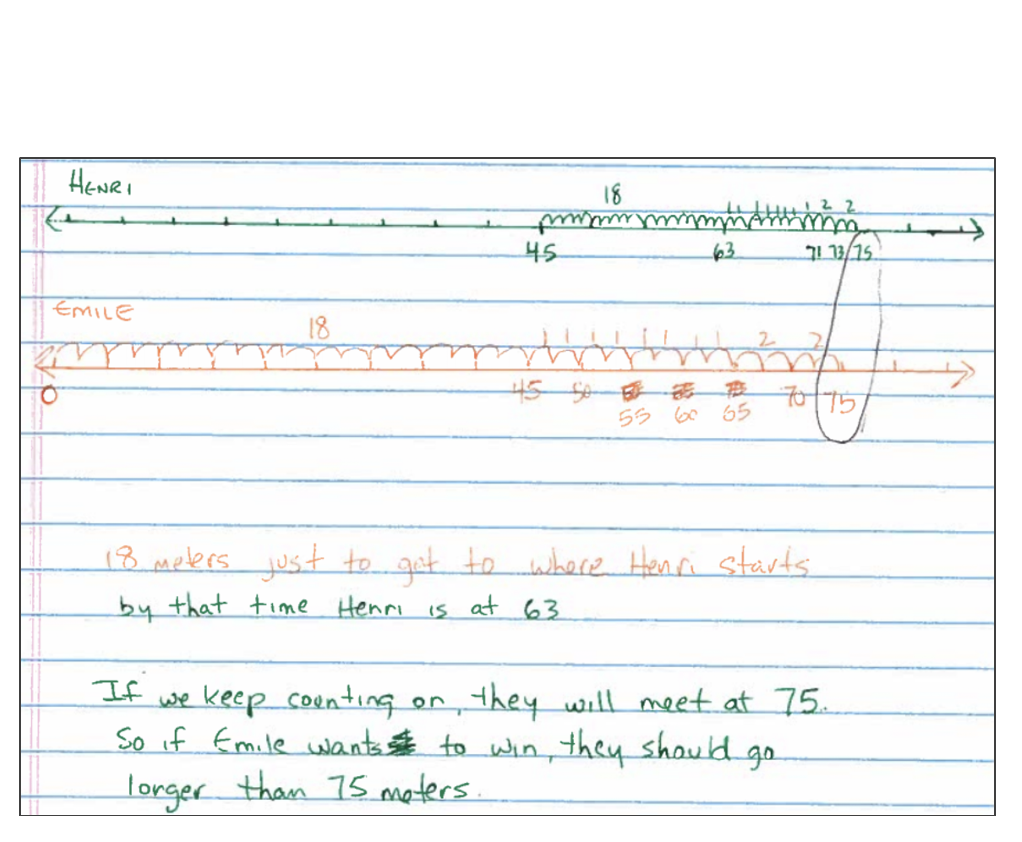 HENRI
18
1 1 1 1 1 1 1 1 2 2
45 63 71 73 75
EMILE
18
1 1 1 1 1 1 1 1 2 2
0 45 50 70 75
55 60 65
18 meters just to get to where Henri starts
by that time Henri is at 63
If we keep counting on, they will meet at 75.
So if Emile wants to win, they should go
longer than 75 meters.